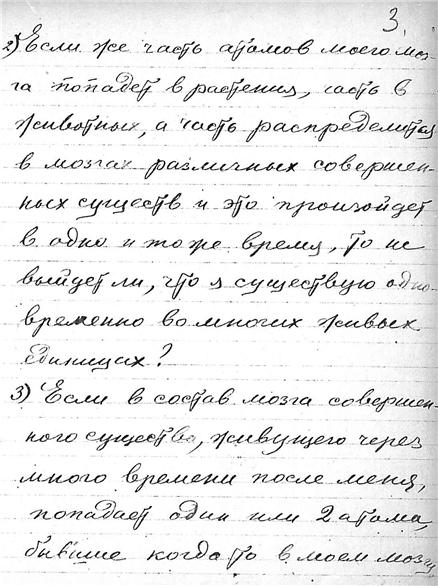 3.
2) Если же часть атомов моего моз-
га попадет в растения, часть в
животных, а часть распределится
в мозгах различных совершен-
ных существ и это произойдет
в одно и то же время, то не
выйдет ли, что я существую одно-
временно во многих живых
единицах?
3) Если в состав мозга совершен-
ного существа, живущего через
много времени после меня,
попадает один или 2 атома,
бывшие когда то в моем мозгу